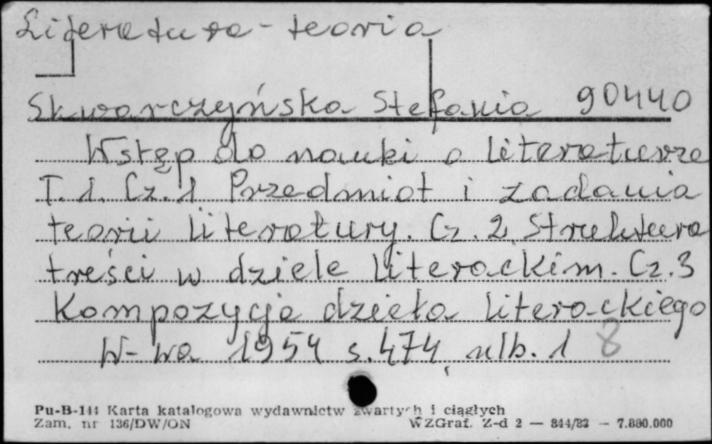 Literatura - teoria
Skwarczyńska Stefania 90440
Wstęp do nauki o literaturze
T. 1. Cz. 1 Przedmiot i zadania
teorii literatury. Cz. 2 Struktura
treści w dziele literackim. Cz. 3
Kompozycja dzieła literackiego
W-wa 1954 s. 474, nlb. 1 8
Pu-B-144 Karta katalogowa wydawnictw zwartych i ciągłych
Zam. nr 136/DW/ON WZGraf. Z-d 2 — 844/82 — 7.880.000